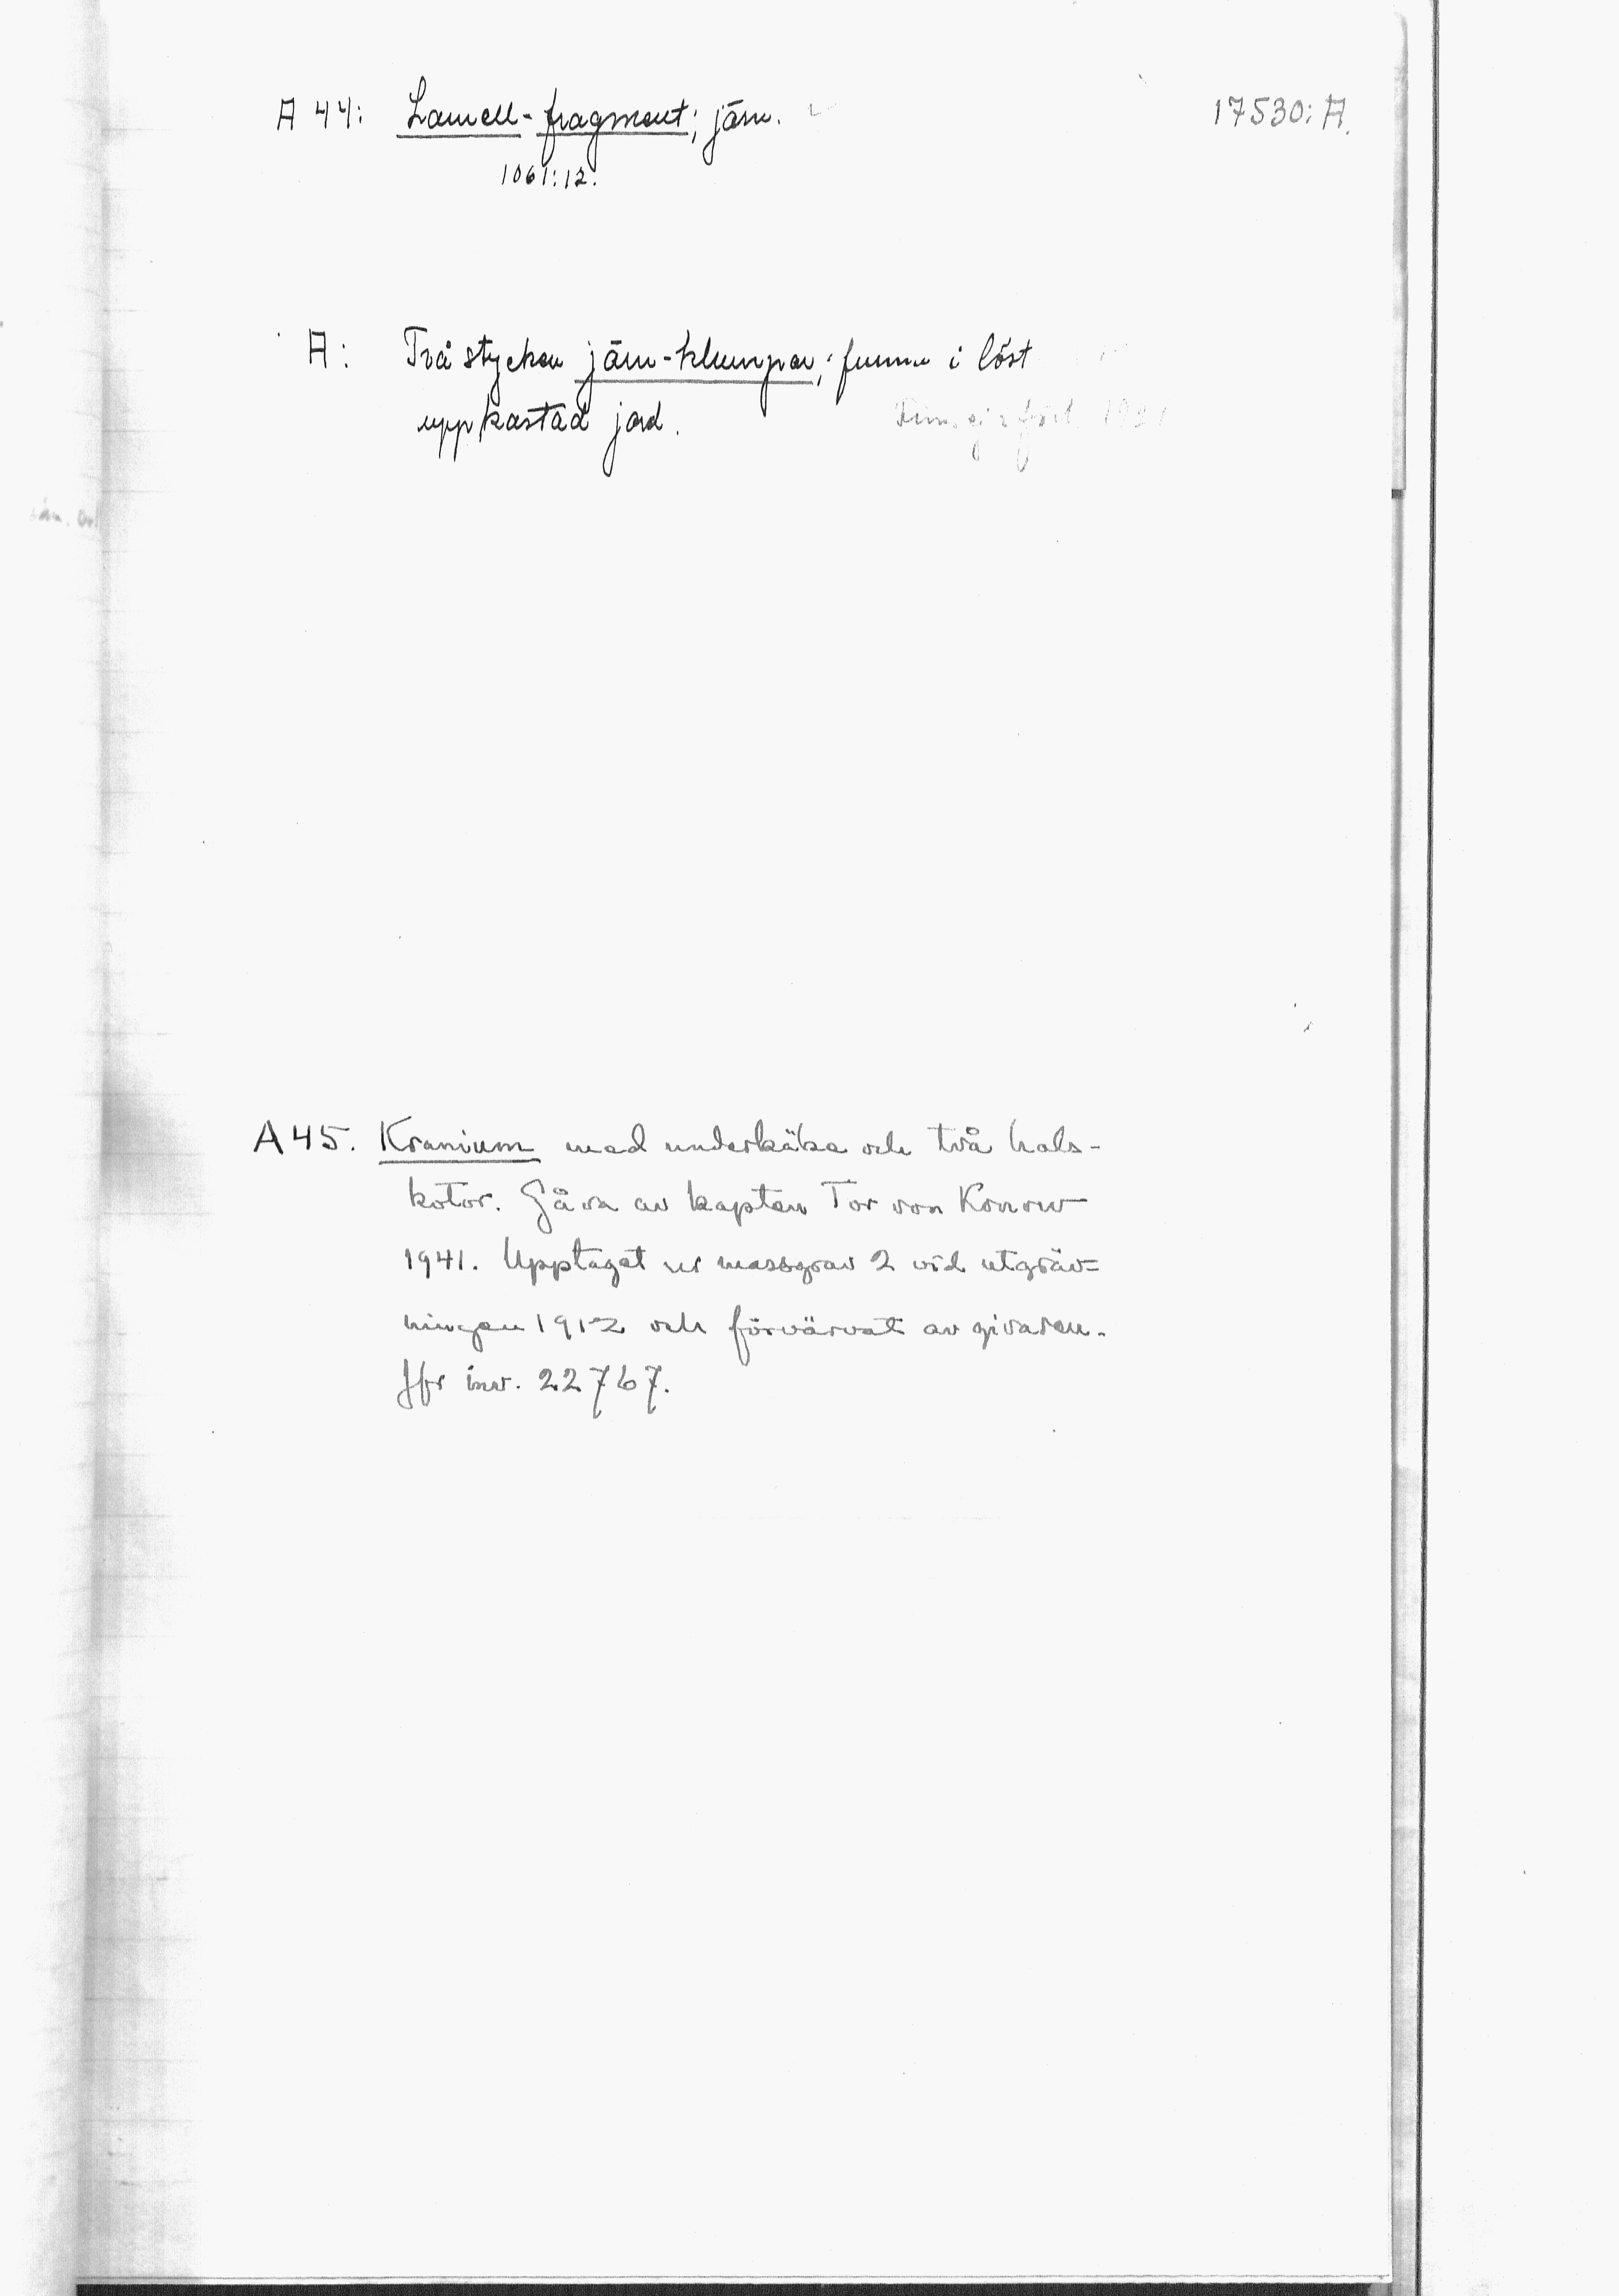 A 44: Lamell-fragment; järn. 17530:A.
1061:12.
A: Två stycken järn-klumpar; funna i löst
uppkastad jord.
A 45. Kranium med underkäke och två hals-
kotor. Gåva av kapten Tor von Konow
1941. Upptaget ur massgrav 2 vid utgräv=
ningen 1912 och förvärvat av givaren.
Jfr inv. 22767.